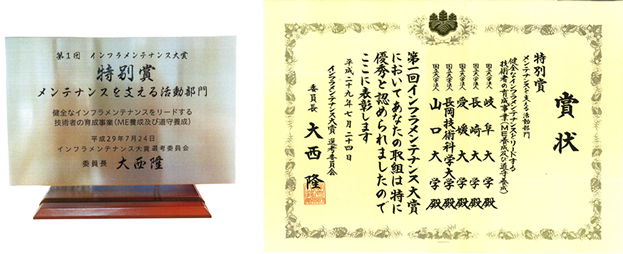 第1回 インフラメンテナンス大賞
特別賞
メンテナンスを支える活動部門
健全なインフラメンテナンスをリードする
技術者の育成事業(ME養成及び道守養成)
平成29年7月24日
インフラメンテナンス大賞選考委員会
委員長 大西隆
賞状
特別賞
メンテナンスを支える活動部門
健全なインフラメンテナンスをリードする
技術者の育成事業(ME養成及び道守養成)
国立大学法人 岐阜大学殿
国立大学法人 長崎大学殿
国立大学法人 愛媛大学殿
国立大学法人 長岡技術科学大学殿
国立大学法人 山口大学殿
第一回インフラメンテナンス大賞
においてあなたの取組は特に
優秀と認められましたので
ここに表彰します
平成二十九年七月二十四日
インフラメンテナンス大賞選考委員会
委員長 大西隆